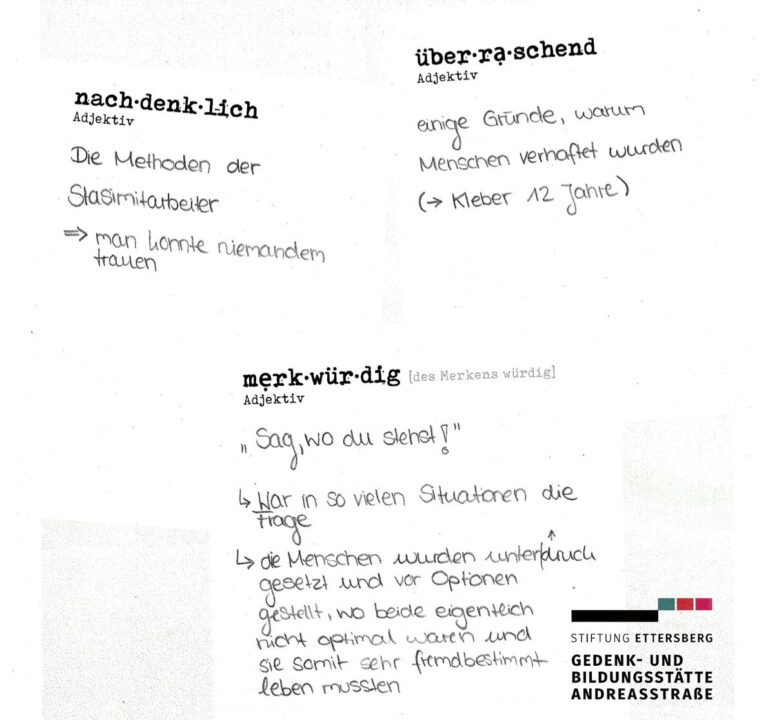 nach·denk·lich
Adjektiv
Die Methoden der
Stasimitarbeiter
=> man konnte niemandem
trauen
über·ra·schend
Adjektiv
einige Gründe, warum
Menschen verhaftet wurden
(→ Kleber 12 Jahre)
merk·wür·dig [des Merkens würdig]
Adjektiv
„Sag, wo du stehst!"
↳ War in so vielen Situationen die
Frage
↳ die Menschen wurden unter|druck
gesetzt und vor Optionen
gestellt, wo beide eigentlich
nicht optimal waren und
sie somit sehr fremdbestimmt
leben mussten
STIFTUNG ETTERSBERG
GEDENK- UND
BILDUNGSSTÄTTE
ANDREASSTRAßE